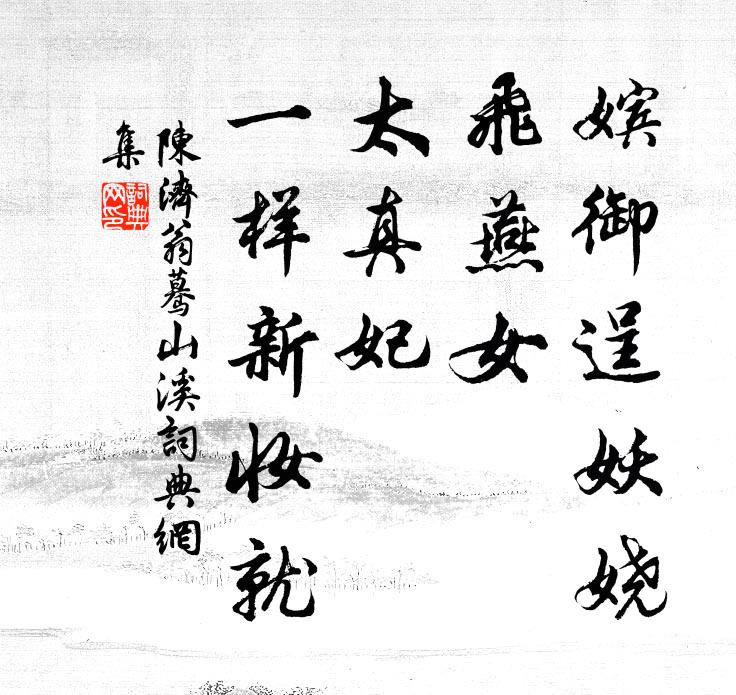 嫔御逞妖娆
飛燕女
太真妃
一样新妝就
陳濟翁驀山溪詞典網
集
詞典
网印